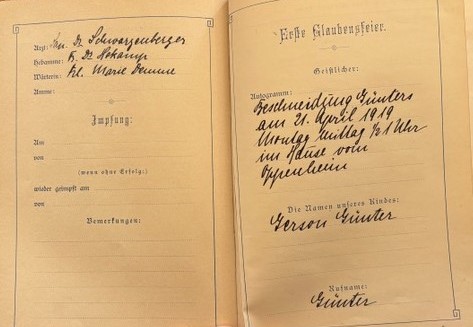 Arzt: Dr. Schwarzenberger
Hebamme:
Wärterin: Frl. Marie
Amme:
Impfung:
Am
von
(wenn ohne Erfolg:)
wieder geimpft am
von
Bemerkungen:
Erste Glaubensfeier.
Geistlicher:
Autogramm:
Beschneidung Günters
am 21. April 1919
Montag Mittag ½1 Uhr
im Hause vom
Oppenheim
Die Namen unseres Kindes:
Gerson Günter
Rufname:
Günter